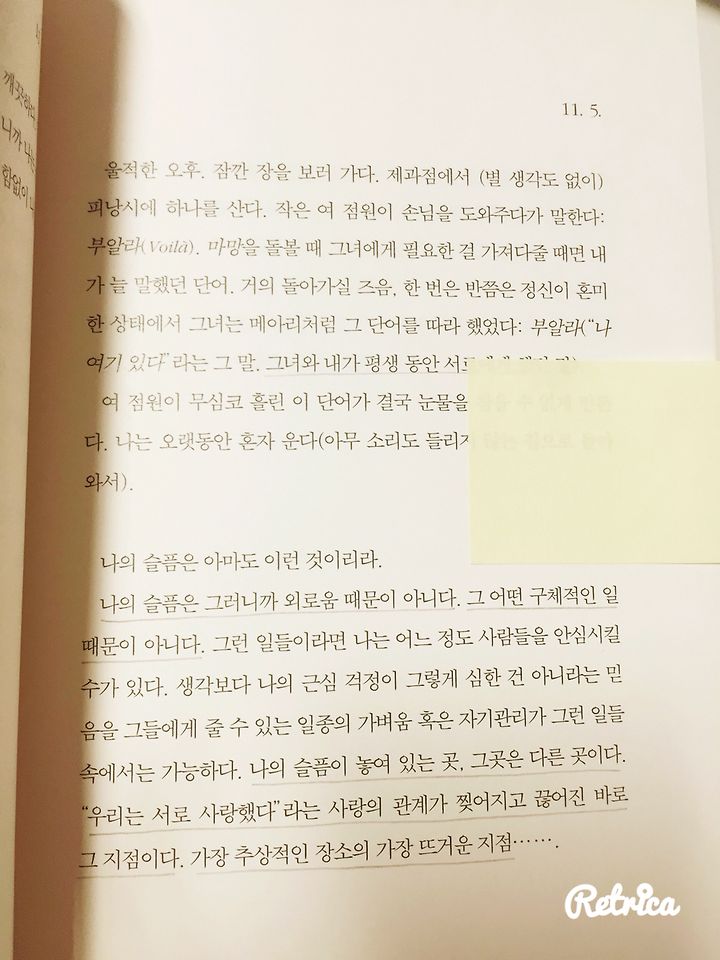 깨끗하
니까 나는
함없이 나
11. 5.
울적한 오후. 잠깐 장을 보러 가다. 제과점에서 (별 생각도 없이)
피낭시에 하나를 산다. 작은 여 점원이 손님을 도와주다가 말한다:
부알라(Voilà). 마망을 돌볼 때 그녀에게 필요한 걸 가져다줄 때면 내
가 늘 말했던 단어. 거의 돌아가실 즈음, 한 번은 반쯤은 정신이 혼미
한 상태에서 그녀는 메아리처럼 그 단어를 따라 했었다: 부알라(“나
여기 있다”라는 그 말. 그녀와 내가 평생 동안
여 점원이 무심코 흘린 이 단어가 결국 눈물을 참을 수 없게 만든
다. 나는 오랫동안 혼자 운다(아무 소리도 들리지 않는 집으로 돌아
와서).
나의 슬픔은 아마도 이런 것이리라.
나의 슬픔은 그러니까 외로움 때문이 아니다. 그 어떤 구체적인 일
때문이 아니다. 그런 일들이라면 나는 어느 정도 사람들을 안심시킬
수가 있다. 생각보다 나의 근심 걱정이 그렇게 심한 건 아니라는 믿
음을 그들에게 줄 수 있는 일종의 가벼움 혹은 자기관리가 그런 일들
속에서는 가능하다. 나의 슬픔이 놓여 있는 곳, 그곳은 다른 곳이다.
“우리는 서로 사랑했다”라는 사랑의 관계가 찢어지고 끊어진 바로
그 지점이다. 가장 추상적인 장소의 가장 뜨거운 지점…….
Retrica